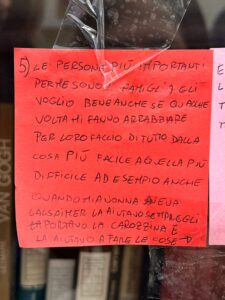 5) LE PERSONE PIÙ IMPORTANTI
PER ME SONO I FAMIGLIA GLI
VOGLIO BENE ANCHE SE QUALCHE
VOLTA MI FANNO ARRABBIARE
PER LORO FACCIO DI TUTTO DALLA
COSA PIÙ FACILE A QUELLA PIÙ
DIFFICILE AD ESEMPIO ANCHE
QUANDO MIA NONNA AVEVA
L'ALSAIMER LA AIUTAVO SEMPRE GLI
PORTAVO LA CAROZZINA E
LA AIUTAVO A FARE LE COSE
VAN GOGH